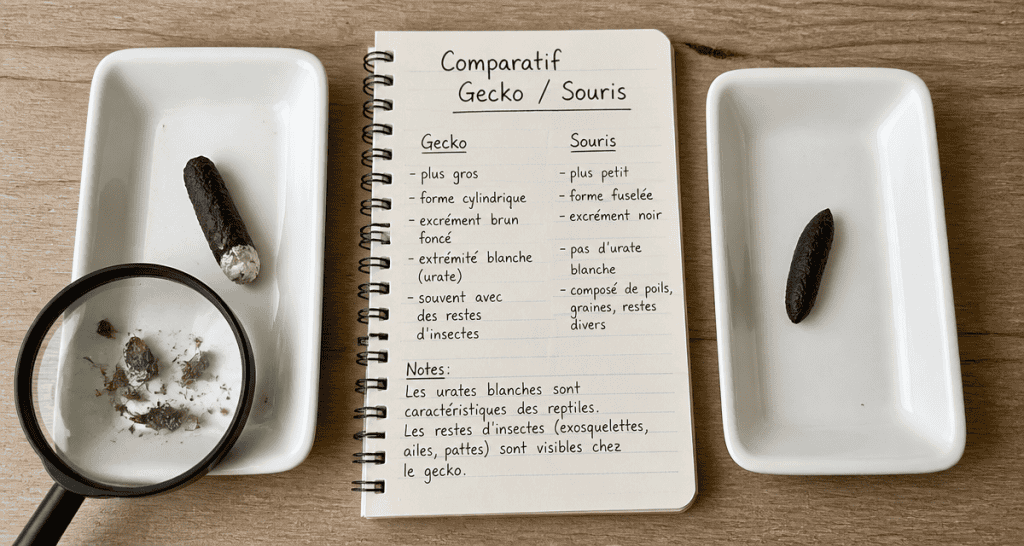 Comparatif
Gecko / Souris
Gecko
- plus gros
- forme cylindrique
- excrément brun
foncé
- extrémité blanche
(urate)
- souvent avec
des restes
d'insectes
Souris
- plus petit
- forme fuselée
- excrément noir
- pas d'urate
blanche
- composé de poils,
graines, restes
divers
Notes:
Les urates blanches sont
caractéristiques des reptiles.
Les restes d'insectes (exosquelettes,
ailes, pattes) sont visibles chez
le gecko.